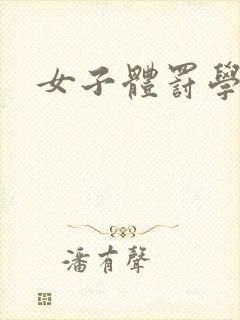 女子體罰學
潘有聲